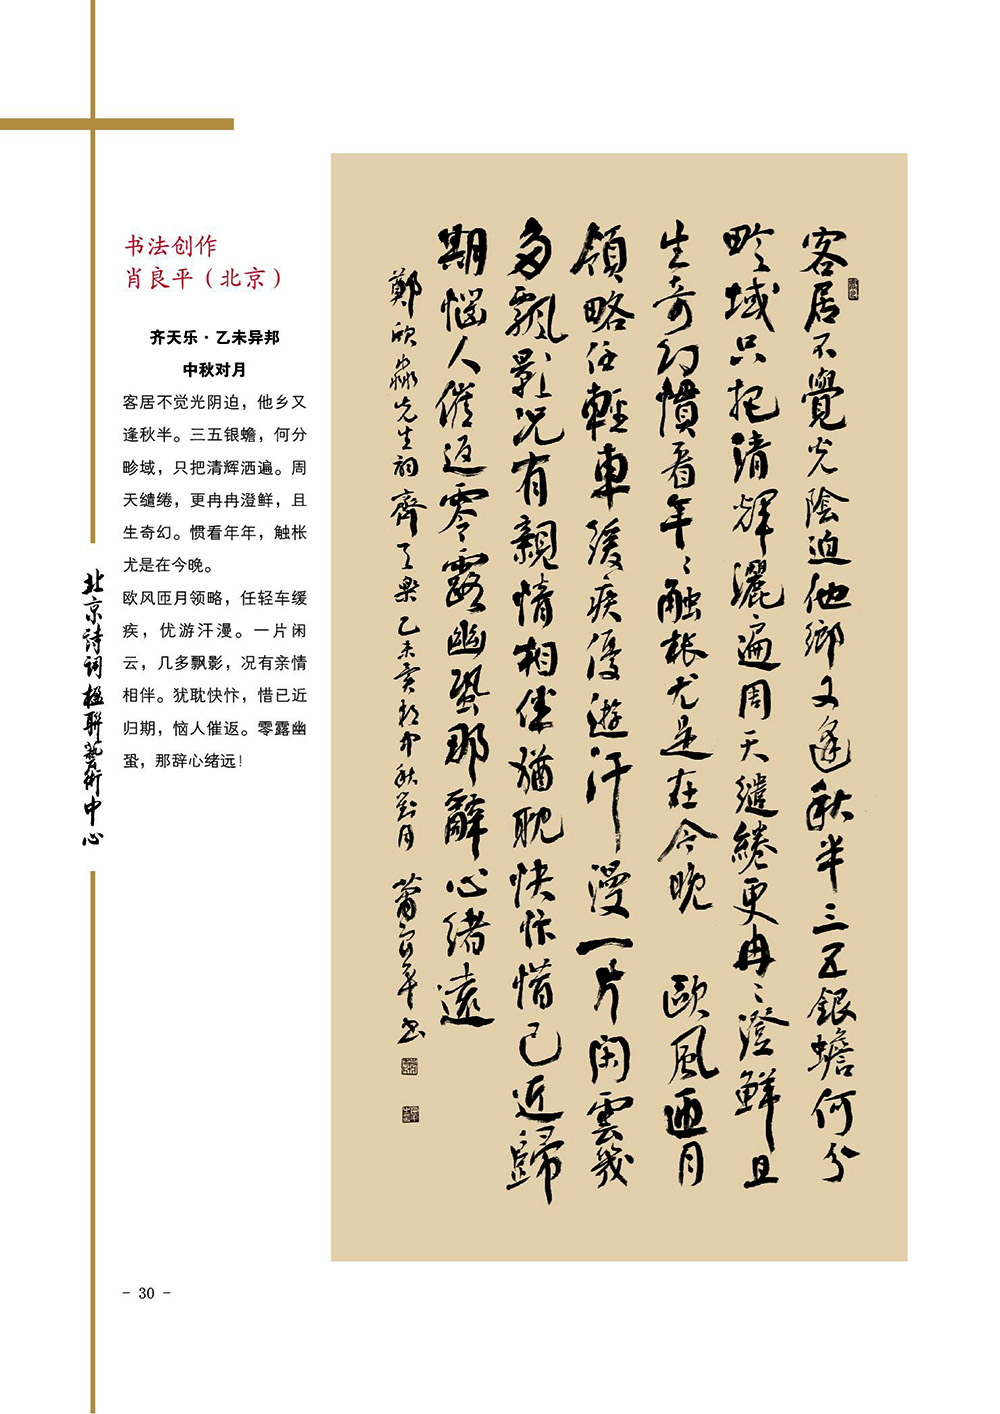 书法创作
肖良平（北京）
齐天乐·乙未异邦
中秋对月
客居不觉光阴迫，他乡又
逢秋半。三五银蟾，何分
畛域，只把清辉洒遍。周
天缱绻，更冉冉澄鲜，且
生奇幻。惯看年年，触怅
尤是在今晚。
欧风匝月领略，任轻车缓
疾，优游汗漫。一片闲
云，几多飘影，况有亲情
相伴。犹耽快忭，惜已近
归期，恼人催返。零露幽
蛩，那辞心绪远！
北京詩詞楹聯藝術中心
客居不覺光陰迫他鄉又逢秋半三五銀蟾何分
畛域只把清輝灑遍周天繾綣更冉〻澄鮮且
生奇幻慣看年〻触怅尤是在今晚 歐風匝月
領略任輕車緩疾優遊汗漫一片閑雲幾
多飄影况有親情相伴猶耽快忭惜已近歸
期惱人催返零露幽蛩那辭心緒遠
鄭欣淼先生詞齊天樂乙未異邦中秋對月 蕭良平书
- 30 -